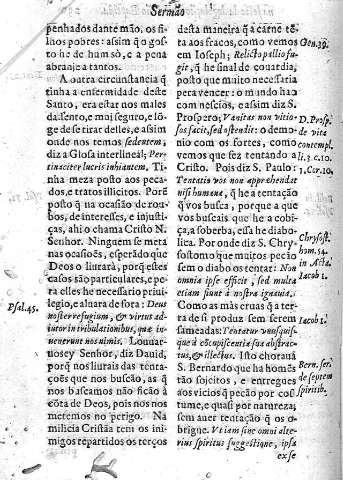 Sermão
penhados dante mão. os fi-
lhos pobres: assim q̃ o gos-
to he de hum só, e a pena
abraje a tantos.
A outra circunstancia q̃
tinha a enfermidade deste
Santo, era estar nos males
da sento, e moj seguro, e lõ-
ge de se tirar delles, e assim
onde nos temos sedentem,
diz a Glosa interlineal; Per-
tinaciter lucris inhiantem, Ti-
tosta meza posto aos peca-
dos, e tratos illicitos. Porẽ
posto q̃ na ocasião de rou-
bos, de interesses, e injusti-
ças, ahi o chama Cristo N.
Senhor. Ninguem se meta
nas ocasiões, esperãdo que
Deos o liurará, porq̃ estes
casos são particulares, e pe-
ra elles he necessario priui-
legio, e aluara de fora: Deus
noster refugium, & virtus ad-
iutor in tribulationibus, quæ in-
uenerunt nos nimis. Louuar-
uosey Senhor, diz Dauid,
porq̃ nos liurais das tenta-
ções que nos buscão, as q̃
nos buscamos não ficão à
cõta de Deos, pois nos nos
metemos no perigo. Na
milicia Cristãa tem os ini-
migos repartidos os terços
Psal. 45.
desta maneira q̃ a carne tẽ-
ta aos fracos, como vemos
em Ioseph; Relicto pallio fu-
git, q̃ he sinal de couardia,
posto que muito necessaria
pera vencer: o mundo ha
com nescios, e assim diz S.
Prospero; Vanitas non vitio-
sos facit, sed ostendit: o demo-
nio com os fortes, como
vemos que sez tentando a
Cristo. Pois diz S. Paulo:
Tentatio vos non apprehendat
nisi humana, q̃ he a tentação
q̃ vos busca, porque a que
vos buscais que he a cobi-
ça, a soberba, essa he diabo-
lica. Por onde diz S. Chry-
sostomo que muitos pecão
sem o diabo os tentar: Non
omnia ipse efficit, sed multa
etiam sunt à nostra ignauia.
Como as más eruas q̃ a ter-
ra de si produz sem serem
sameadas: Tentatur vnusquis-
que à cõcupiscentia sua abstrac-
tus, & illectus. Isto choraua
S. Bernardo que ha homẽs
tão sojeitos, e entregues
aos vicios q̃ pecão por cos-
tume, e quasi por natureza,
sem auer tentação q̃ os o-
brigue. Vt iam sine omni alte-
rius spiritus suggestione, ipsa
ex se
Gen. 39.
D. Prosp.
de vita
contempl.
li. 3. c. 10.
1. Cor. 10.
Chrysost.
hom. 54.
in Acta.
Iacob 1.
Iacob 1.
Bern. ser.
de septem
spiritib.